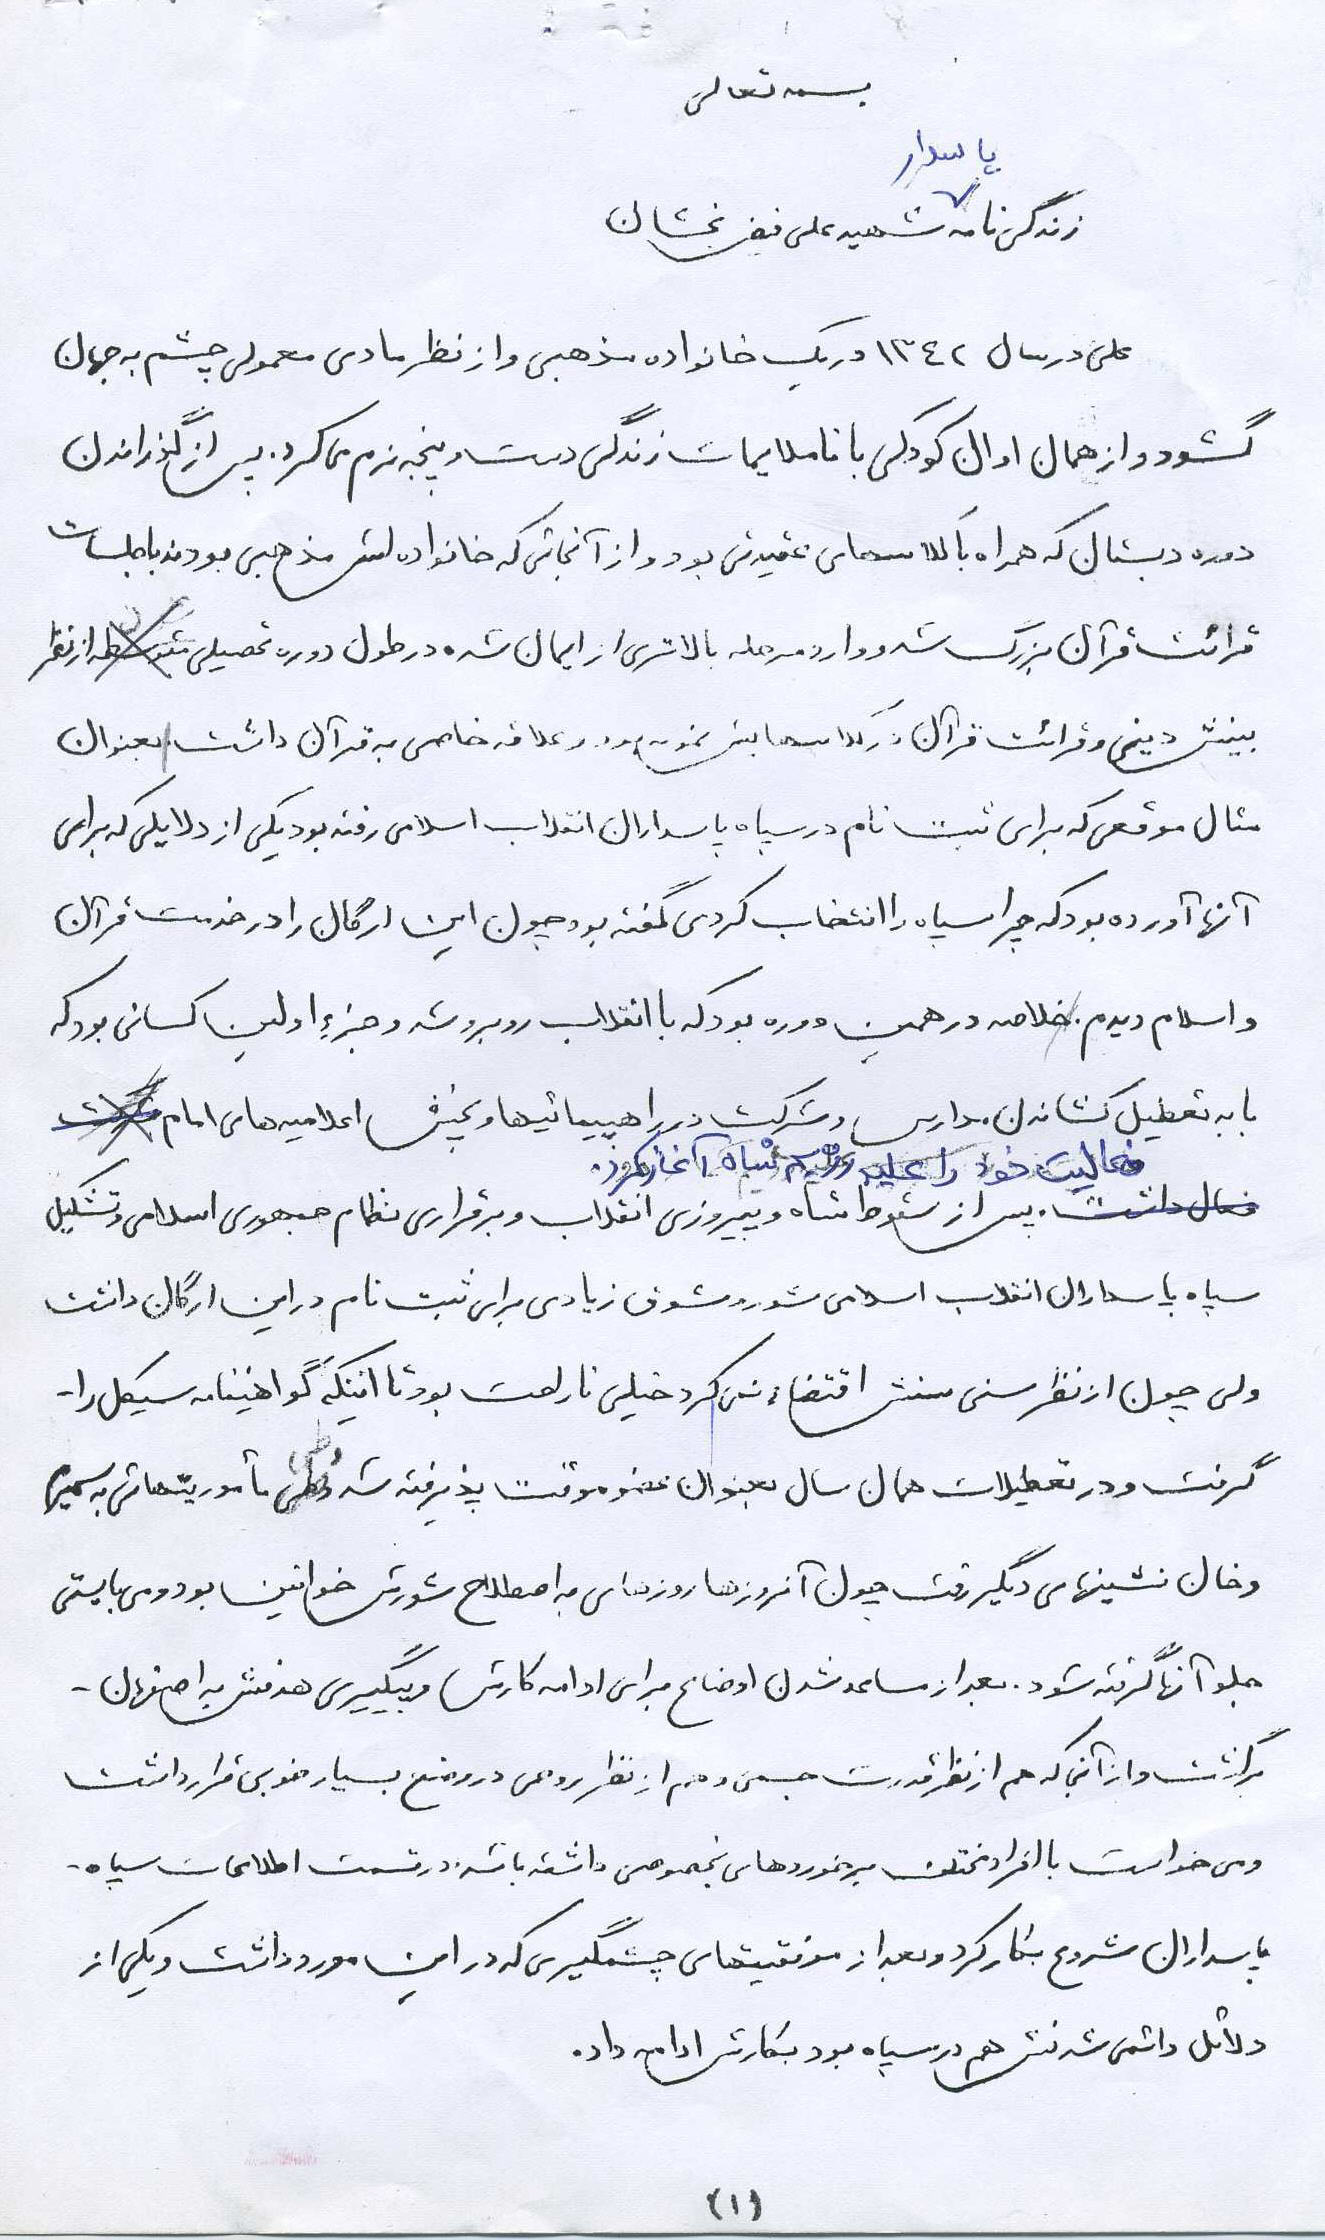 بسمه تعالی
پاسدار
زندگی نامه شهید علی فیض بخشان
علی در سال ۱۳۴۲ در یک خانواده مذهبی و از نظر مادی معمولی چشم به جهان
گشود و از همان اوان کودکی با ناملایمات زندگی دست و پنجه نرم می کرد. پس از گذراندن
دوره دبستان که همراه با کلاسهای عقیدتی بود و از آنجائی که خانواده اش مذهبی بودند با جلسات
قرائت قرآن بزرگ شد و وارد مرحله بالاتری از ایمان شد، در طول دوره تحصیلی متوسطه از نظر
بینش دینی و قرائت قرآن در کلاسهایش نمونه بود و علاقه خاصی به قرآن داشت. بعنوان
مثال موقعی که برای ثبت نام در سپاه پاسداران انقلاب اسلامی رفته بود یکی از دلایلی که برای
آنها آورده بود که چرا سپاه را انتخاب کردی گفته بود چون این ارگان را در خدمت قرآن
و اسلام دیدم. خلاصه در همین دوره بود که با انقلاب روبرو شد و جزء اولین کسانی بود که
با به تعطیل کشاندن مدارس و شرکت در راهپیمائیها و پخش اعلامیه های امام
فعالیت خود را علیه رژیم شاه آغاز کرد.
فعال داشت. پس از سقوط شاه و پیروزی انقلاب و برقراری نظام جمهوری اسلامی و تشکیل
سپاه پاسداران انقلاب اسلامی شور و شوق زیادی برای ثبت نام در این ارگان داشت
ولی چون از نظر سنی سنش اقتضاء نمی کرد خیلی ناراحت بود تا اینکه گواهینامه سیکل را-
گرفت و در تعطیلات همان سال بعنوان عضو موقت پذیرفته شد و طی مأموریتهائی به سمیرم
و خان نشینهای دیگر رفت چون آنروزها روزهای به اصطلاح شورش خوانین بود و می بایستی
جلو آنها گرفته شود. بعد از مساعد شدن اوضاع برای ادامه کارش و پیگیری هدفش به اصفهان-
برگشت و از آنجا که هم از نظر قدرت جسمی و هم از نظر روحی در وضع بسیار خوبی قرار داشت
و می خواست با افراد مختلف برخوردهای بخصوصی داشته باشد، در قسمت اطلاعات سپاه-
پاسداران شروع بکار کرد و بعد از موفقیتهای چشمگیری که در این مورد داشت و یکی از
دلائل دائمی شدنش هم در سپاه بود بکارش ادامه داد.
(۱)